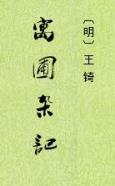 〔明〕王锜
寓圃杂记